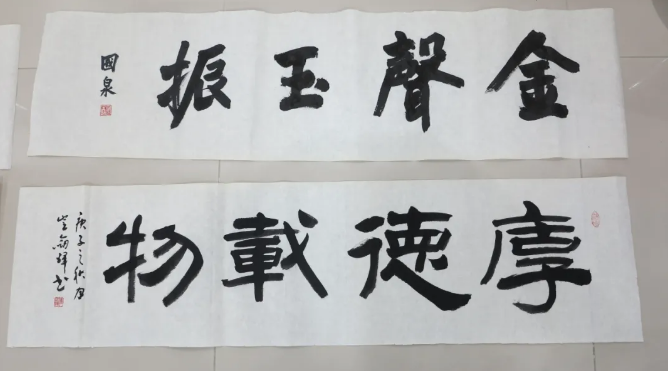 金聲玉振
國泉
厚德載物
庚子之秋月
劍輝书